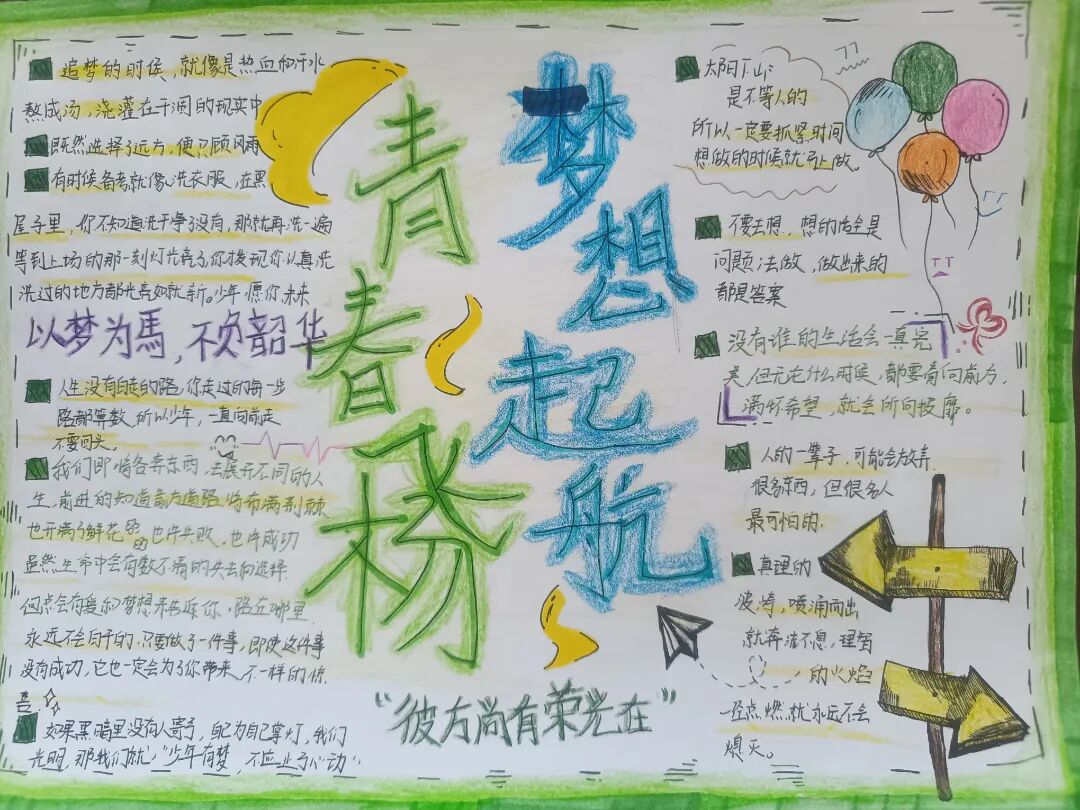 追梦的时候，就像是热血和汗水
熬成汤，浇灌在干涸的现实中
既然选择了远方，便只顾风雨
有时候备考就像洗衣服，在黑
屋子里，你不知道洗干净了没有，那就再洗一遍
等到上场的那一刻灯光亮了你发现你认真洗
洗过的地方都光亮如就新。少年愿你未来
以梦为馬，不负韶华
人生没有白走的路，你走过的每一步
路都算数，所以少年，一直向前走
不要回头。
我们即将各奔东西，去展开不同的人
生，前进的知道前方道路将布满荆棘
也开满了鲜花 也许失败，也许成功
虽然生命中会有数不清的失去和选择
但总会有爱和梦想来告诉你，路在哪里
永远不会白干的，只要做了一件事，即使这件事
没有成功，它也一定会为了你带来不一样的你
如果黑暗里没有人嘉了，自己为自己掌灯，我们
光明，那我们就"少年有梦，不应止于心动"
青春飞扬
梦想起航
"彼方尚有荣光在"
太阳下山
是不等人的
所以一定要抓紧时间
想做的时候就马上做。
不要去想，想的话全是
问题；去做，做出来的
都是答案
没有谁的生活会一直完
美，但无论什么时候，都要看向前方，
满怀希望，就会所向披靡。
人的一辈子，可能会放弃
很多东西，但很多人
最可怕的.
真理的
波涛，喷涌而出
就奔流不息，理智
的火焰
一经点燃，就永远不会
熄灭。